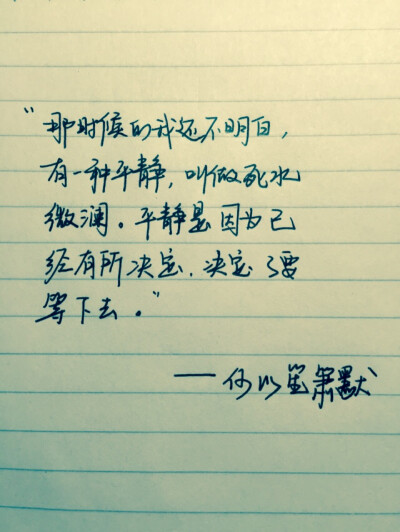 “那时候的我还不明白，
有一种平静，叫做死水
微澜。平静是因为已
经有所决定，决定了要
等下去。”
——何以笙箫默